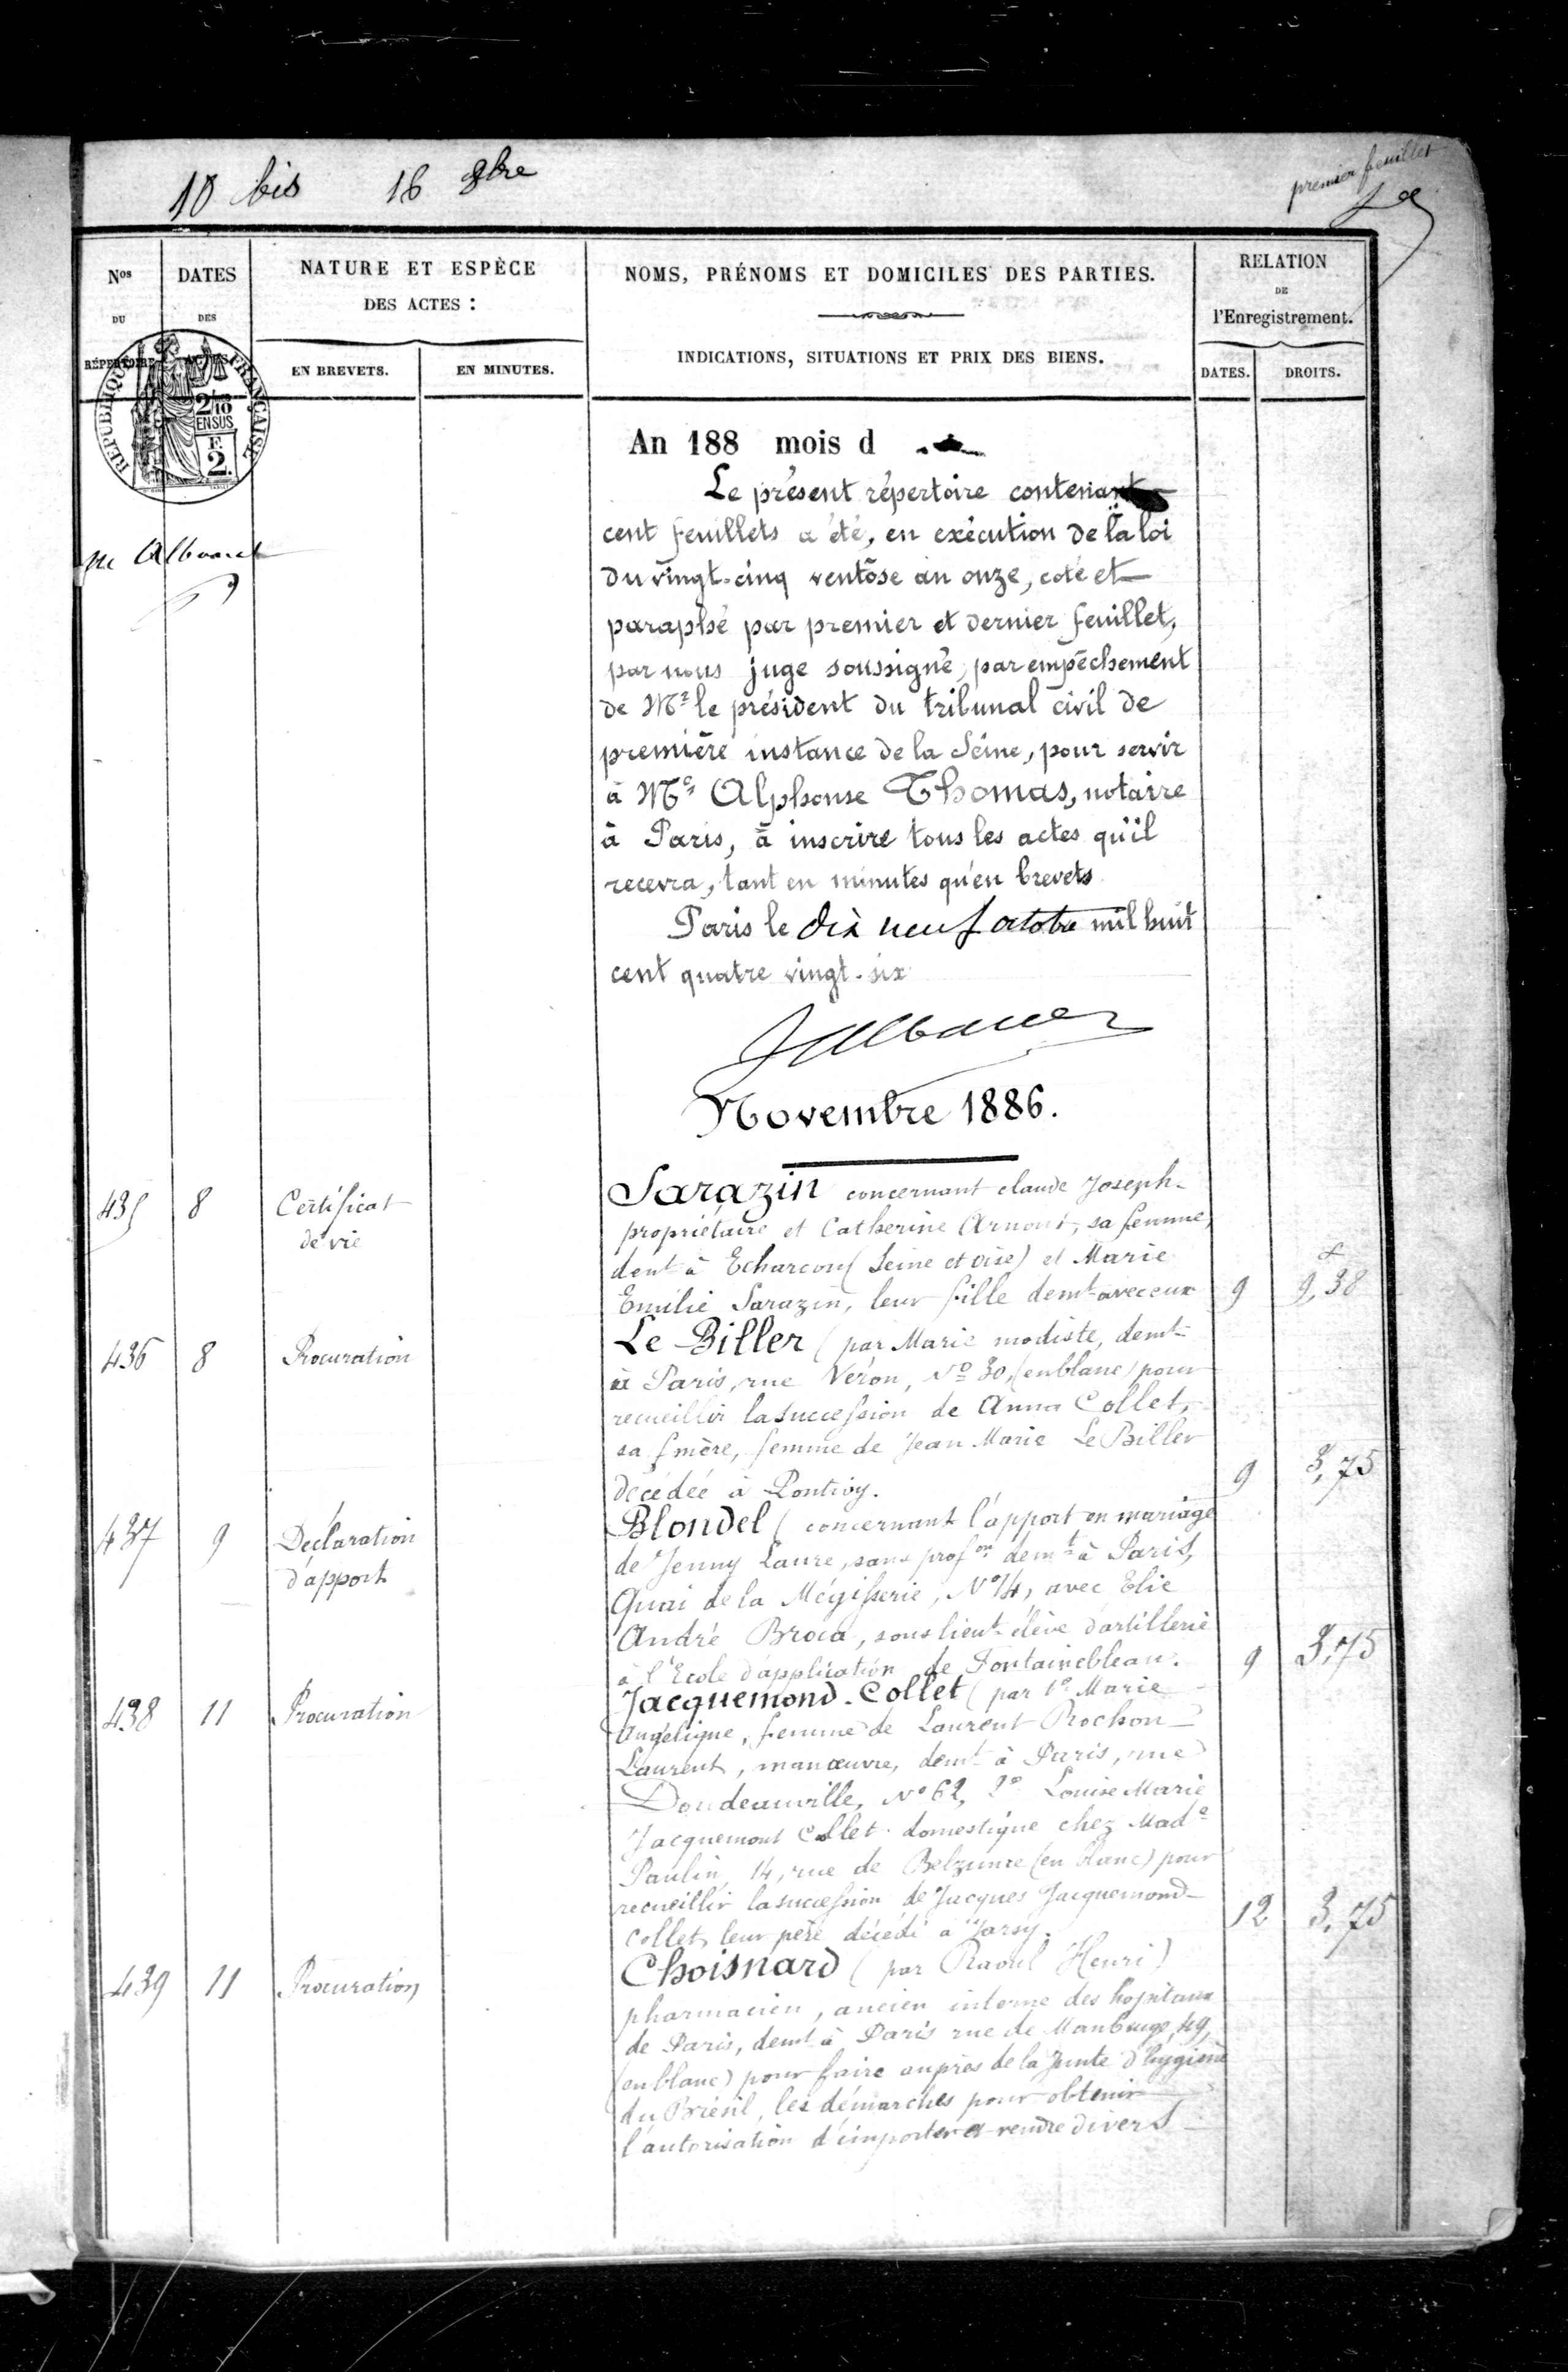 10 bis 16 9bre
premier feuillet
Nos
DU
RÉPERTOIRE
DATES
DES
ACTES
NATURE ET ESPÈCE
DES ACTES :
EN BREVETS.
EN MINUTES.
NOMS, PRÉNOMS ET DOMICILES DES PARTIES.
INDICATIONS, SITUATIONS ET PRIX DES BIENS.
RELATION
DE
l'Enregistrement.
DATES.
DROITS.
REPUBLIQUE FRANÇAISE
2/10
EN SUS
F.
2.
An 188 mois d
Le présent répertoire contenant
cent feuillets a été, en exécution de la loi
du vingt-cinq ventôse an onze, coté et
paraphé par premier et dernier feuillet,
par nous juge soussigné, par empêchement
de Mr le président du tribunal civil de
première instance de la Seine, pour servir
à Me Alphonse Thomas, notaire
à Paris, à inscrire tous les actes qu'il
recevra, tant en minutes qu'en brevets
Paris le dix neuf octobre mil huit
cent quatre vingt-six
Novembre 1886.
435 8 Certificat de vie
Sarazin concernant claude Joseph-
propriétaire et Catherine Arnoult, sa femme,
demt à Echarcon (Seine et oise) et Marie
Emilie Sarazin, leur fille demt avec eux 9 9,38
436 8 Procuration
Le Biller (par Marie modiste, demt
à Paris, rue Véron, No 30, (en blanc) pour
recueillir la succession de Anna Collet,
sa mère, femme de Jean Marie Le Biller
décédée à Pontivy. 9 3,75
437 9 Déclaration d'apport
Blondel (concernant l'apport en mariage
de Jenny Laure, sans profon demt à Paris,
Quai de la Mégisserie, No 14, avec Elie
André Broca, sous lieut élève d'artillerie
à l'Ecole d'application de Fontainebleau. 9 3,75
438 11 Procuration
Jacquemond-Collet (par 1o Marie
Angélique, femme de Laurent Rochon
Laurent, manœuvre, demt à Paris, rue
Doudeauville, No 62, 2o Louise Marie
Jacquemont Collet domestique chez Made
Paulin, 14, rue de Belzunce (en blanc) pour
recueillir la succession de Jacques Jacquemond-
Collet, leur père décédé à Jarsy. 12 3,75
439 11 Procuration
Choisnard (par Raoul Henri)
pharmacien, ancien interne des hopitaux
de Paris, demt à Paris rue de Maubeuge, 49,
(en blanc) pour faire auprès de la Junte d'hygiène
du Brésil, les démarches pour obtenir
l'autorisation d'importer et vendre divers